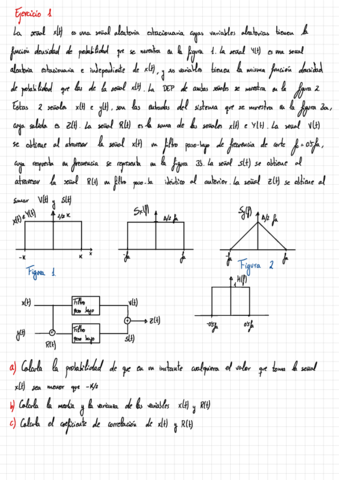 Ejercicio 1
La señal x(t) es una señal aleatoria estacionaria cuyas variables aleatorias tienen la
función densidad de probabilidad que se muestra en la figura 1. La señal Y(t) es una señal
aleatoria estacionaria e independiente de x(t), y sus variables tienen la misma función densidad
de probabilidad que las de la señal x(t). La DEP de ambas señales se muestra en la figura 2
Estas 2 señales x(t) e y(t), son las entradas del sistema que se muestra en la figura 3a,
cuya salida es Z(t). La señal R(t) es la suma de las señales x(t) e Y(t). La señal V(t)
se obtiene al atravesar la señal x(t) un filtro paso-bajo de frecuencia de corte
cuya respuesta en frecuencia se representa en la figura 3b. La señal s(t) se obtiene al
atravesar la señal R(t) un filtro idéntico al anterior. La señal z(t) se obtiene al
sumar V(t) y S(t)
-K K x
Figura 1
Figura 2
x(t) Filtro paso bajo V(t)
Z(t)
y(t) Filtro paso bajo S(t)
R(t)
H(f)
a) Calcula la probabilidad de que en un instante cualquiera el valor que toma la señal
x(t) sea menor que
b) Calcula la media y la varianza de las variables x(t) y R(t)
c) Calcula el coeficiente de correlación de x(t) y R(t)